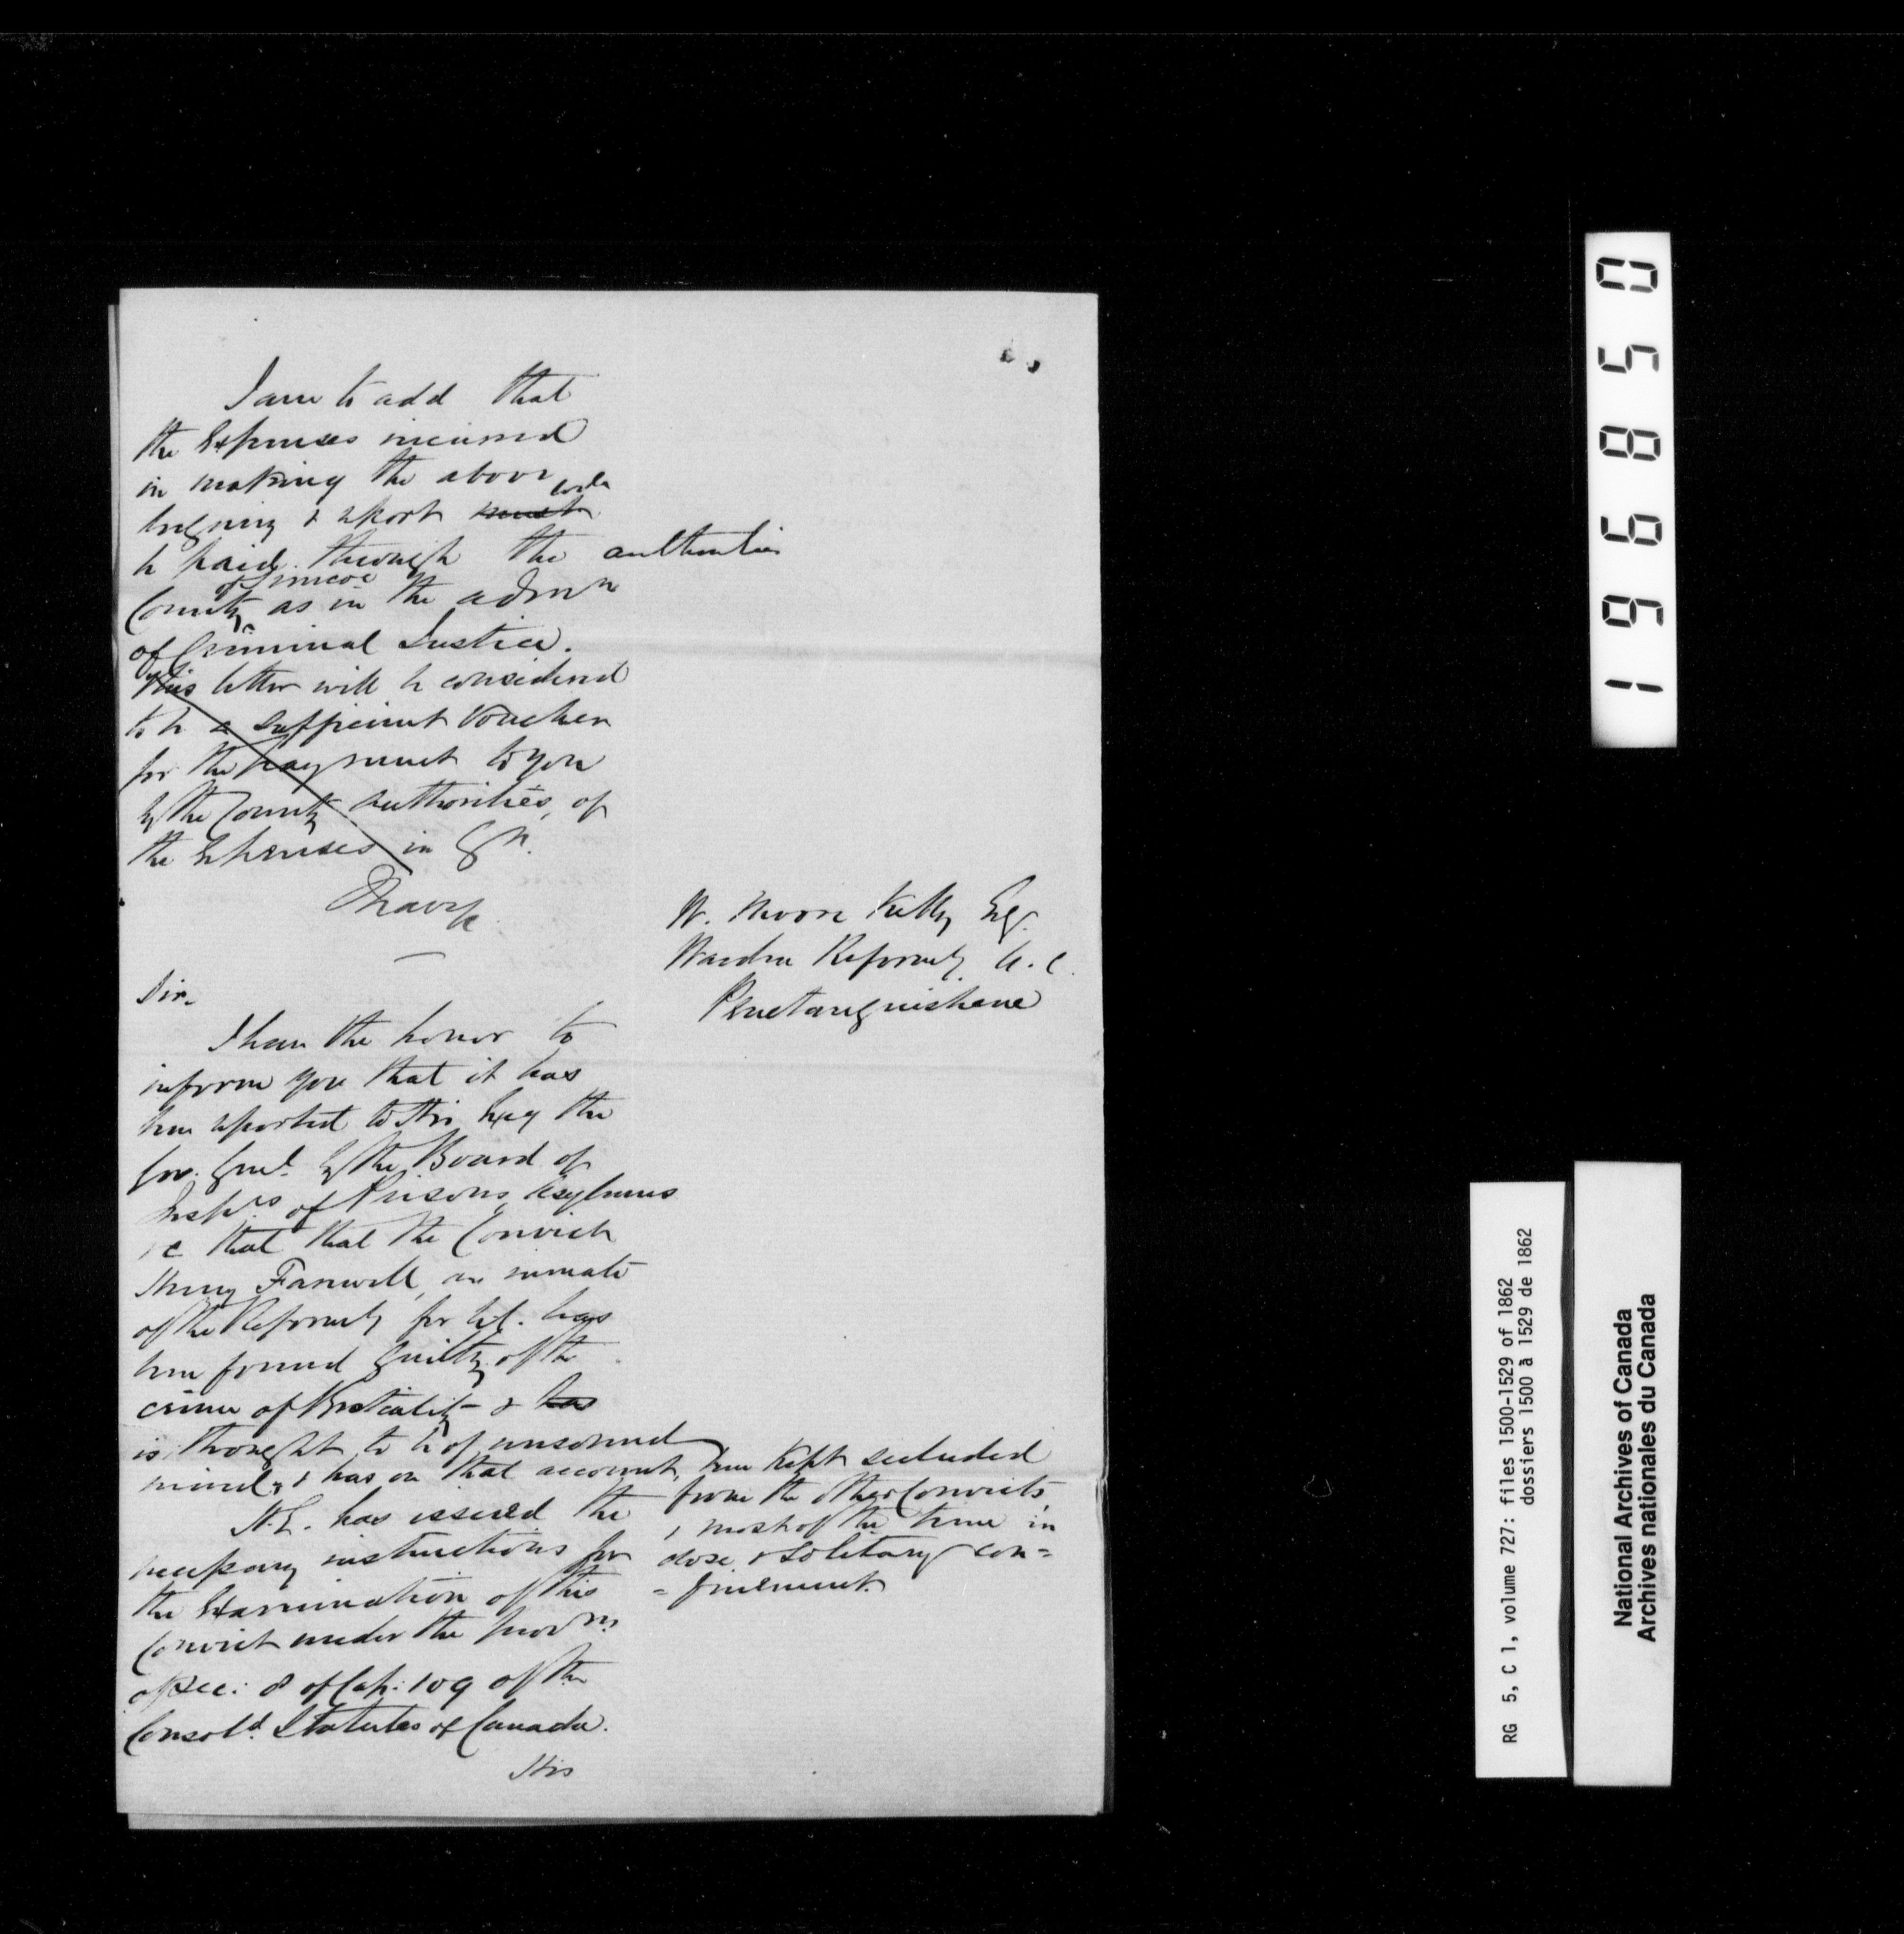 I am to add that
the Expenses incurred
in making the above
& report must
be paid through the authorities
County of Simcoe as in the admn
of Criminal Justice.
This letter will be considered
to be a sufficient voucher
for the payment to you
by the County authorities, of
the Expenses in Qn.
I have &c
W. Moore Kelly Esq.
Warden Reformty U.C.
Penetanguishene
Sir,
I have the honor to
inform you that it has
been reported to His Excy the
Gov. Genl. by the Board of
Insprs of Prisons Asylums
&c that that the Convict
Henry Farewell, an inmate
of the Reformty for U.C. has
been found guilty of the
crime of Bestiality & has
is thought to be of unsound
mind, & has on that account, been kept secluded
from the other Convicts,
& most of the time in
close & solitary con=
=finement.
H.E. has issued the
necessary instructions for
the Examination of this
Convict under the provns
of Sec: 8 of Cap: 109 of the
Consold. Statutes of Canada.
His
196850
RG 5, C 1, volume 727: files 1500-1529 of 1862
dossiers 1500 à 1529 de 1862
National Archives of Canada
Archives nationales du Canada